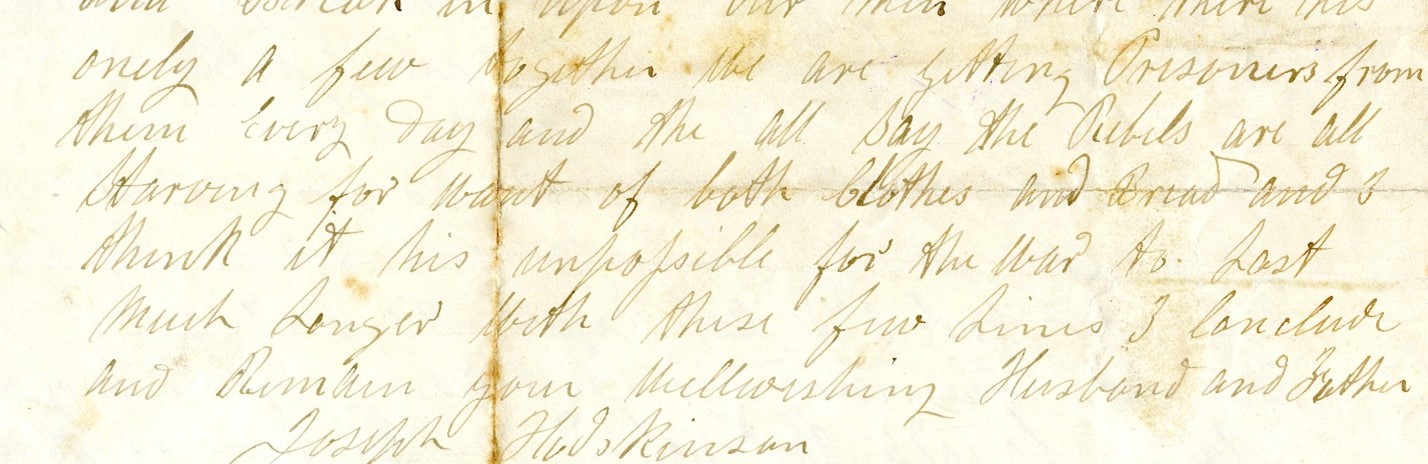 and Break in upon our men where there his
onely a few together We are getting Prisoners from
them Every Day and the all Say the Rebels are all
Starving for want of both Clothes and Bread and I
think it his unpossible for the War to Last
Much Longer With these few Lines I Conclude
and Remain your Wellwishing Husband and Father
Joseph Hodskinson